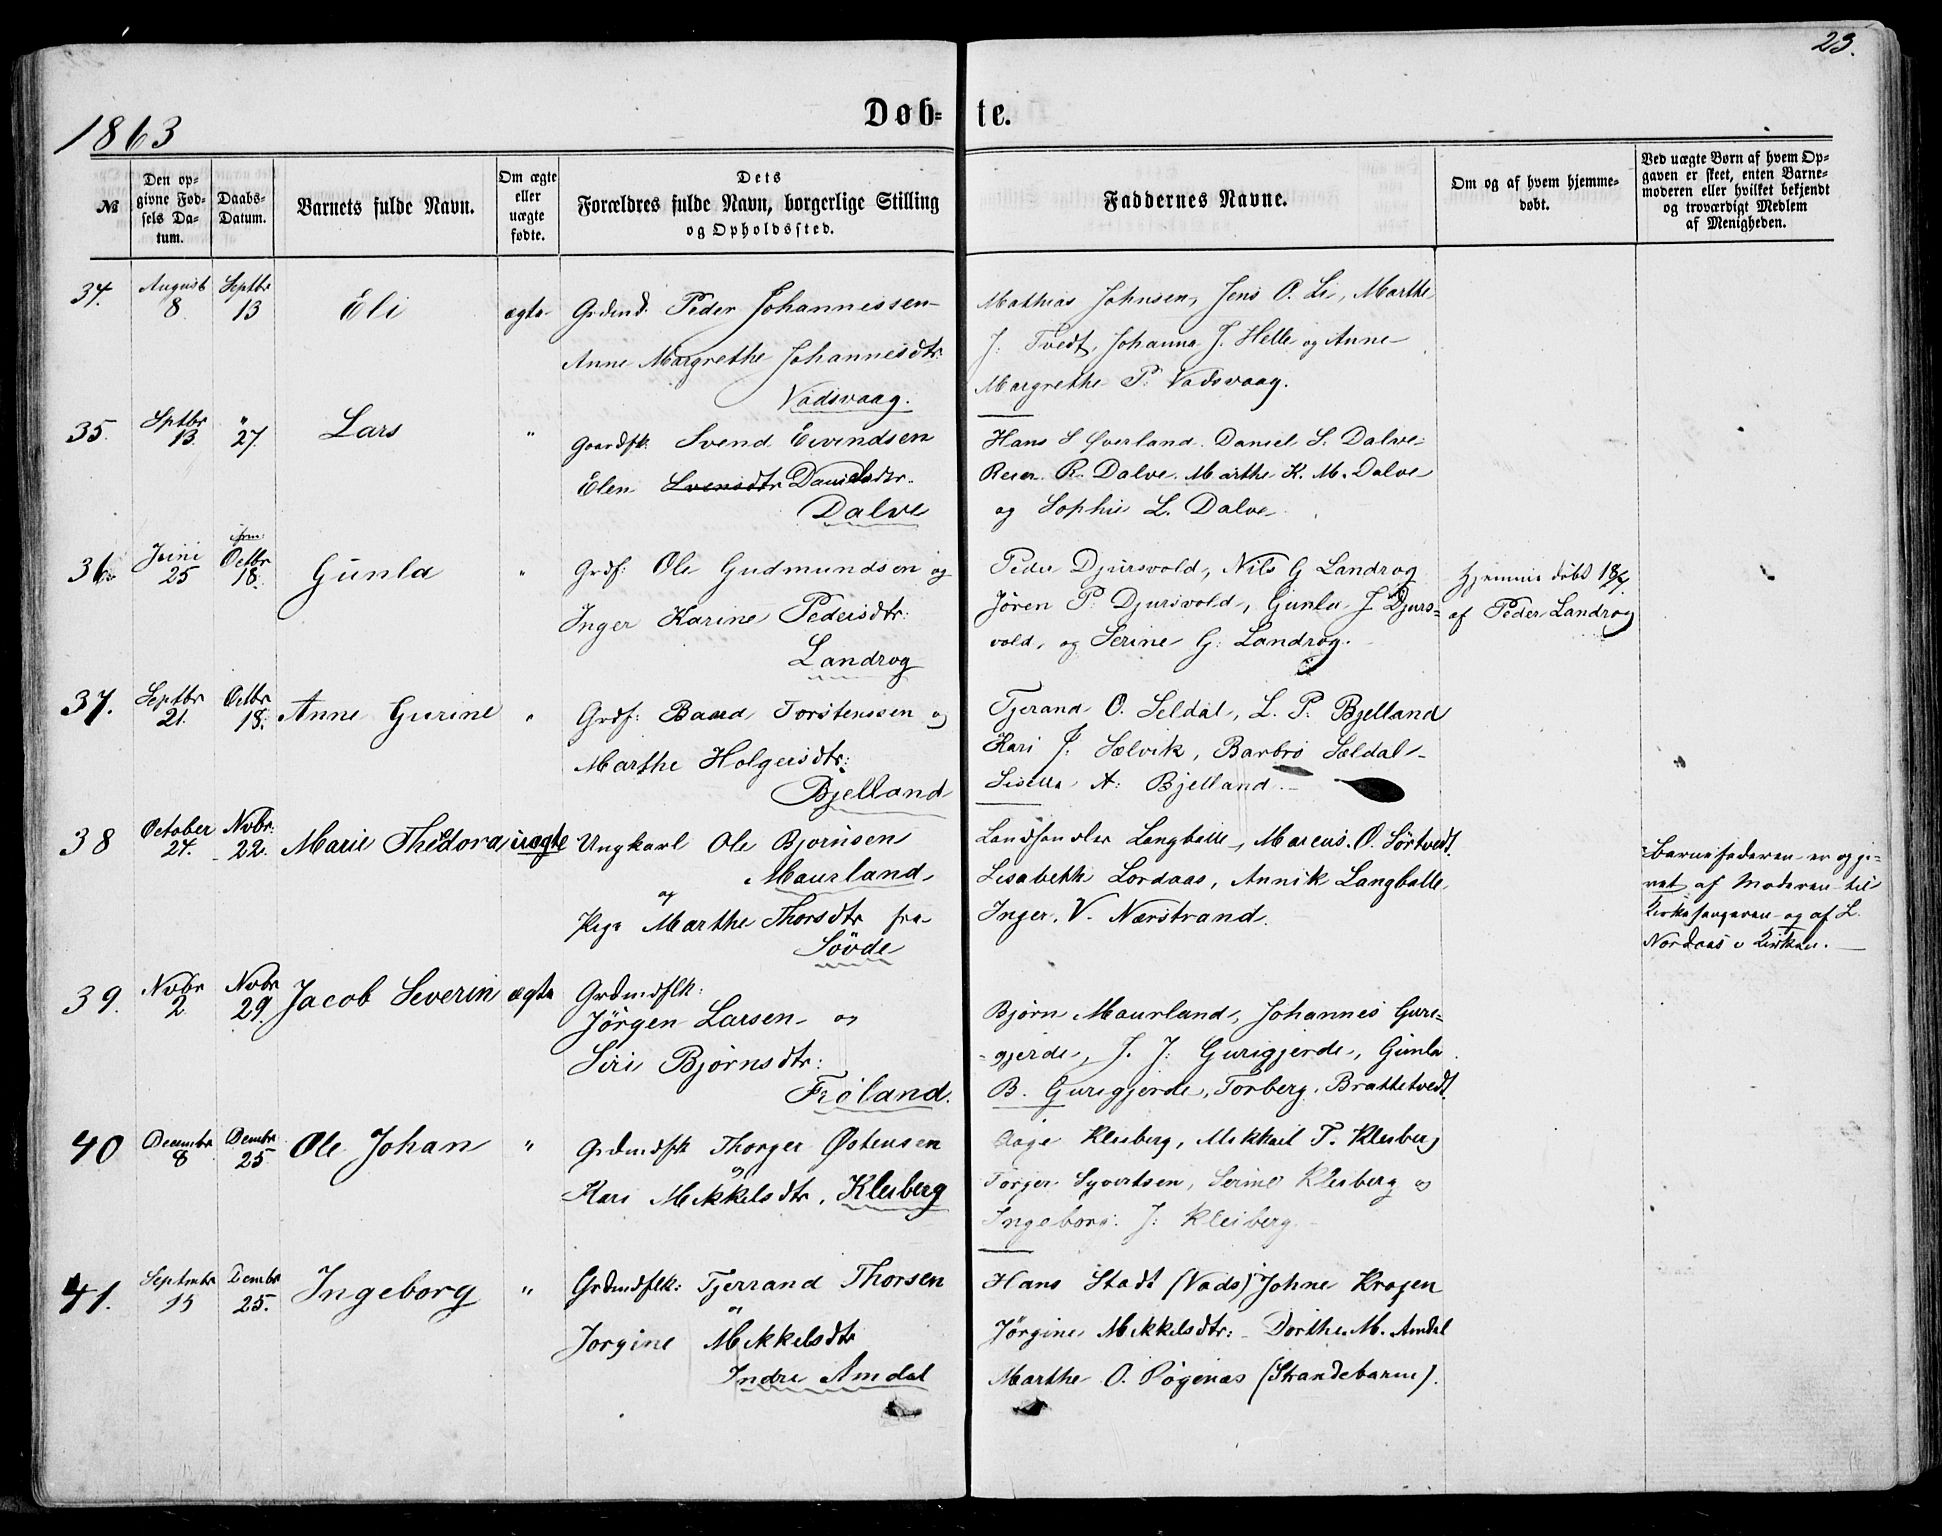 23.
1863
Døb- te.
№
Den op-
givne Fød-
sels Da-
tum.
Daabs-
Datum.
Barnets fulde Navn.
Om ægte
eller
uægte
fødte.
Dets
Forældres fulde Navn, borgerlige Stilling
og Opholdssted.
Faddernes Navne.
Om og af hvem hjemme-
døbt.
Ved uægte Børn af hvem Op-
gaven er skeet, enten Barne-
moderen eller hvilket bekjendt
og troværdigt Medlem
af Menigheden.
34. August 8 Septbr 13 Eli ægte Grdmd. Peder Johannessen
Anne Margrethe Johannesdtr
Vadsvaag.
Mathias Johnsen, Jens O. Li, Marthe
J: Tvedt, Johanna J. Helle og Anne
Margrethe P: Vadsvaag.
35. Sptbr 13. " 27. Lars " Gaardfk: Svend Eivindsen
Elen Svensdtr Danielsdtr.
Dalve
Hans S Øverland. Daniel S: Dalve
Reier R. Dalve. Marthe K. M. Dalve
og Sophie L. Dalve
36. Juni 25 Octbr 18. Gunla " Grdf: Ole Gudmundsen og
Inger Karine Pedersdtr:
Landrog
Peder Djursvold, Nils G Landrog
Jören P: Djursvold, Gunla J Djurs-
vold, og Serine G: Landrog.
Hjemme døbt
af Peder Landrog
37. Septbr 21. Octbr 18. Anne Gurine " Grdf: Baard Torstenssen og
Marthe Holgersdtr:
Bjelland
Tjerand O. Seldal, L. P. Bjelland
Kari J: Sælvik, Barbro Sældal
A: Bjelland.
38 October 24. Nvbr: 22. Marie Thedora uægte Ungkarl Ole Bjornsen
Maurland
og
Pige Marthe Thorsdtr fra
Søvde
Landhandler Langballe, Marcus. O. Sörtvedt.
Lisabeth Lordaas, Annik Langballe,
Inger. V. Nærstrand.
Barnefaderen er opgi-
vet af Moderen til
Kirkesangeren og af L.
Nordaas i Kirken.
39. Nvbr 2 Nvbr 29. Jacob Severin ægte Grdmdflk:
Jörgen Larsen og
Siri Bjørnsdtr:
Frøland.
Bjørn Maurland, Johannes Guri-
-gjerde, J. J: Gurigjerde, Gunla
B. Gurigjerde, Torberg. Brattetvedt.
40 Decembr 8 Decmbr 25 Ole Johan " Grdmdfk Thorger Østensen
og
Kari Mikkelsdtr, Kleiberg
Aage Kleiberg, Mikkael T. Kleiberg
Torjer Syvertsen, Serine Kleiberg og
Ingeborg. J: Kleiberg.
41. Septmbr 15 Decmbr 25. Ingeborg " Grdmdflk: Tjerrand Thorsen
og
Jorgine Mikkelsdtr
Indre Amdal
Hans Stadt (Vads) Johne Krogen
Jörgine Mikkelsdtr: Dorthe. M. Amdal
Marthe O. Røgenæs (Strandebarm).